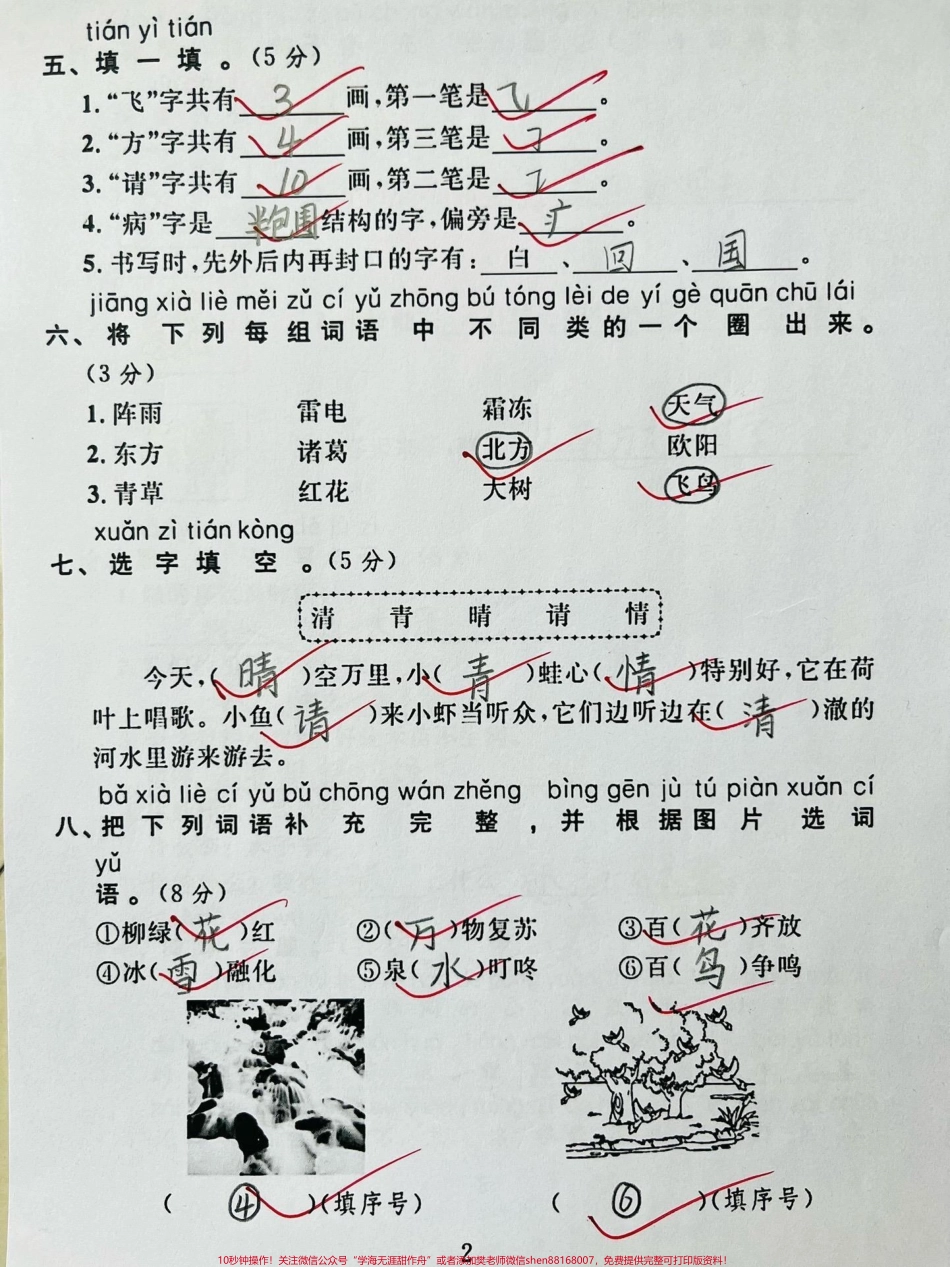 tián yì tián
五、填一填。(5分)
1.“飞”字共有 3 画,第一笔是 ㇈ 。
2.“方”字共有 4 画,第三笔是 ㇆ 。
3.“请”字共有 10 画,第二笔是 ㇊ 。
4.“病”字是 半包围 结构的字,偏旁是 疒 。
5.书写时,先外后内再封口的字有: 白 、 回 、 国 。
jiāng xià liè měi zǔ cí yǔ zhōng bú tóng lèi de yí gè quān chū lái
六、将下列每组词语中不同类的一个圈出来。
(3分)
1.阵雨 雷电 霜冻 天气
2.东方 诸葛 北方 欧阳
3.青草 红花 大树 飞鸟
xuǎn zì tián kòng
七、选字填空。(5分)
清 青 晴 请 情
今天,( 晴 )空万里,小( 青 )蛙心( 情 )特别好,它在荷
叶上唱歌。小鱼( 请 )来小虾当听众,它们边听边在( 清 )澈的
河水里游来游去。
bǎ xià liè cí yǔ bǔ chōng wán zhěng bìng gēn jù tú piàn xuǎn cí
八、把下列词语补充完整,并根据图片选词
yǔ
语。(8分)
①柳绿( 花 )红 ②( 万 )物复苏 ③百( 花 )齐放
④冰( 雪 )融化 ⑤泉( 水 )叮咚 ⑥百( 鸟 )争鸣
( ④ )(填序号) ( ⑥ )(填序号)
2
10秒钟操作!关注微信公众号“学海无涯甜作舟”或者添加樊老师微信shen88168007,免费提供完整可打印版资料!